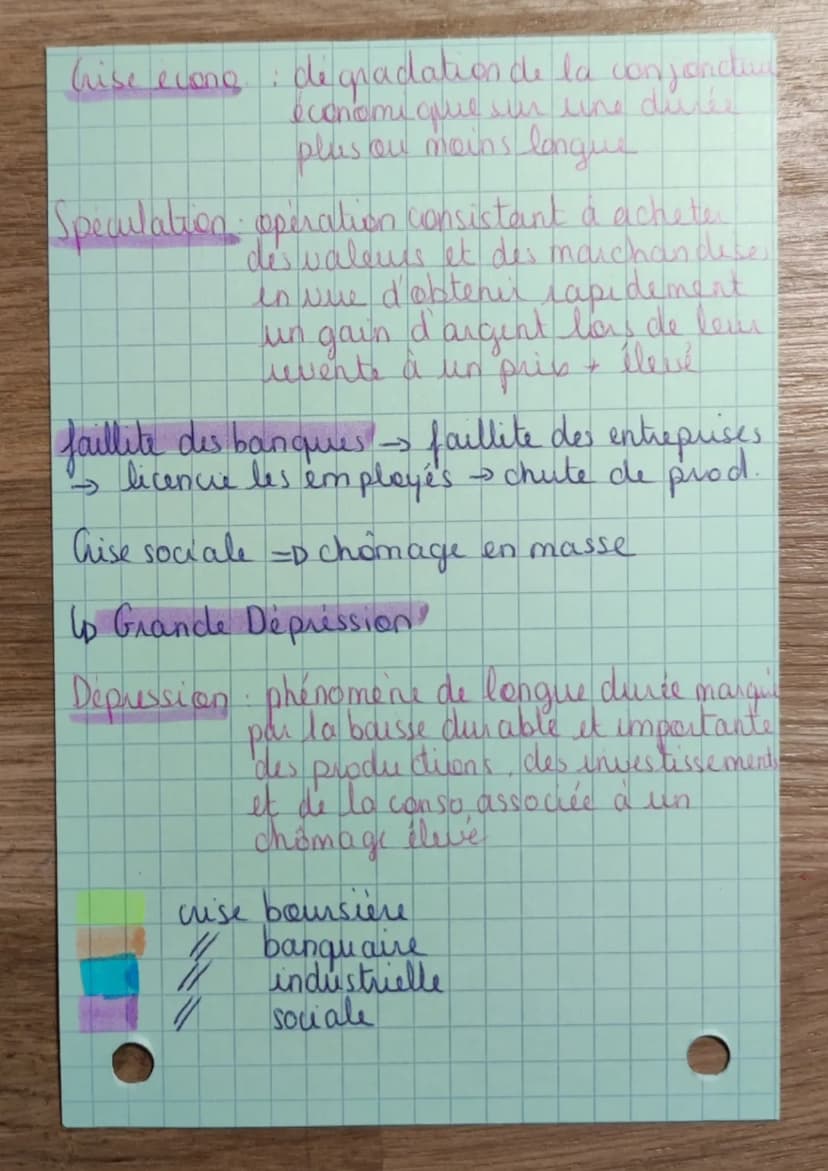 Crise écono : dégradation de la conjonctur
économique sur une durée
plus ou moins longue
Spéculation : opération consistant à acheter
des valeurs et des marchandises
en vue d'obtenir rapidement
un gain d'argent lors de leur
revente à un prix + élevé
faillite des banques → faillite des entreprises
→ licencie les employés → chute de prod.
Crise sociale => chômage en masse
↳ Grande Dépression
Dépression : phénomène de longue durée marqué
par la baisse durable et importante
des productions, des investissements
et de la conso associée à un
chômage élevé
crise boursière
// banquaire
// industrielle
// sociale